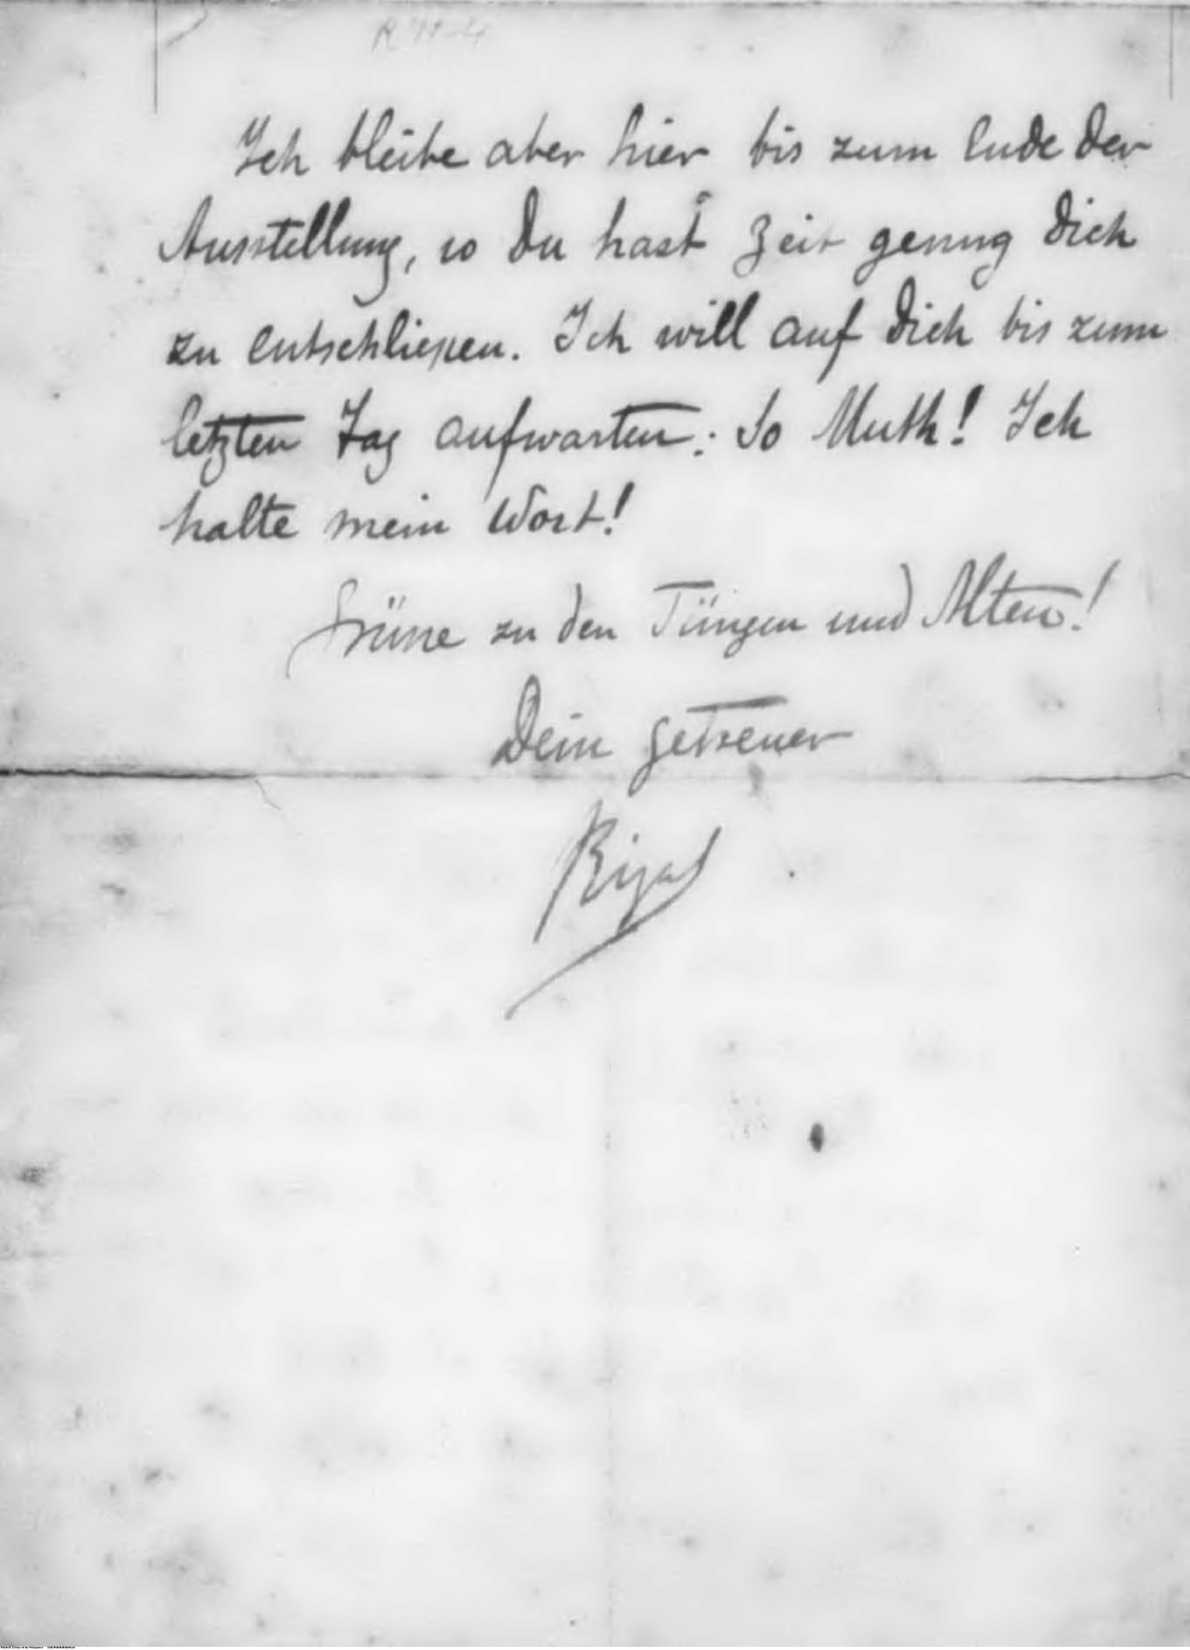 Ich bleibe aber hier bis zum Ende der
Ausstellung, so Du hast Zeit genug Dich
zu entschließen. Ich will auf Dich bis zum
letzten Tag aufwarten: So Muth! Ich
halte mein Wort!
Grüße zu den Jüngen und Alten!
Dein getreuer
Rizal